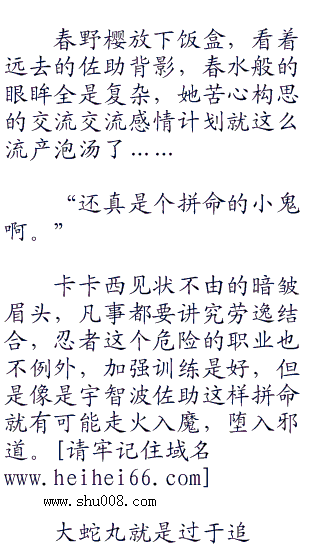 春野樱放下饭盒，看着
远去的佐助背影，春水般的
眼眸全是复杂，她苦心构思
的交流交流感情计划就这么
流产泡汤了……
“还真是个拼命的小鬼
啊。”
卡卡西见状不由的暗皱
眉头，凡事都要讲究劳逸结
合，忍者这个危险的职业也
不例外，加强训练是好，但
是像是宇智波佐助这样拼命
就有可能走火入魔，堕入邪
道。[请牢记住域名
www.heihei66.com]
www.shu008.com
大蛇丸就是过于追